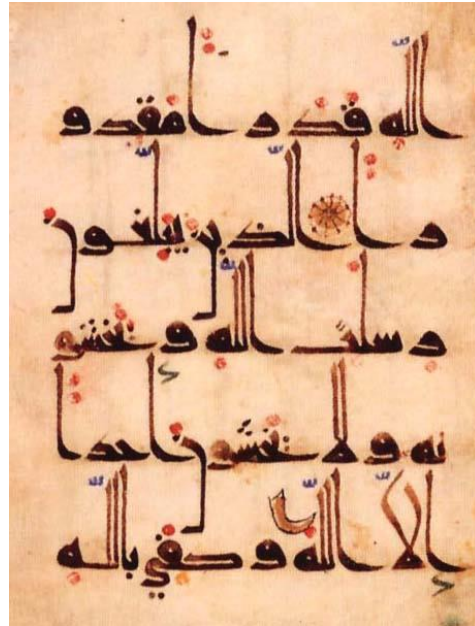 الله قدرا مقدو
را الذين يبلغون
رسلت الله ويخشو
نه ولا يخشون احدا
إلا الله وكفي بالله